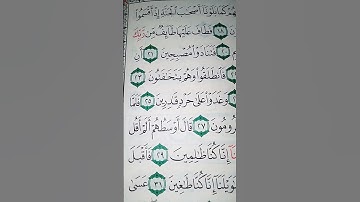 كَمَا بَلَوْنَآ أَصْحَٰبَ ٱلْجَنَّةِ إِذْ أَقْسَمُوا۟
١٨ فَطَافَ عَلَيْهَا طَآئِفٌ مِّن رَّبِّكَ
فَتَنَادَوْا۟ مُصْبِحِينَ ٢١ أَنِ
٢٢ فَٱنطَلَقُوا۟ وَهُمْ يَتَخَٰفَتُونَ ٢٣
وَغَدَوْا۟ عَلَىٰ حَرْدٍ قَٰدِرِينَ ٢٥ فَلَمَّا
رُومُونَ ٢٧ قَالَ أَوْسَطُهُمْ أَلَمْ أَقُل
إِنَّا كُنَّا ظَٰلِمِينَ ٢٩ فَأَقْبَلَ
وَيْلَنَآ إِنَّا كُنَّا طَٰغِينَ ٣١ عَسَىٰ